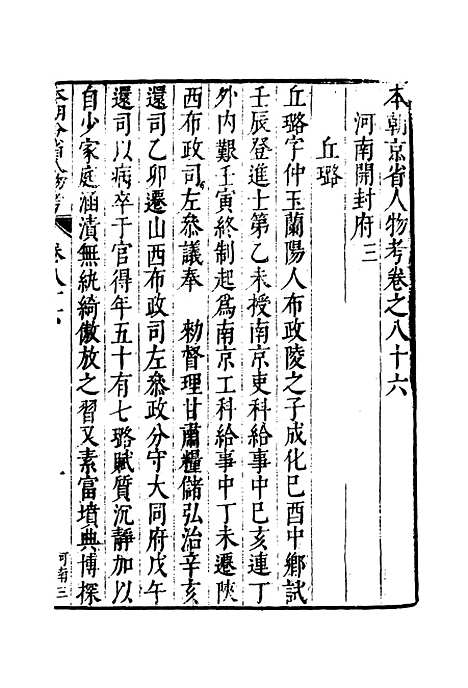 本朝京省人物考卷之八十六
河南開封府三
丘璐
丘璐字仲玉蘭陽人布政陵之子成化己酉中鄉試
壬辰登進士第乙未授南京吏科給事中己亥連丁
外内艱壬寅終制起爲南京工科給事中丁未遷陝
西布政司左叅議奉　勑督理甘肅糧儲弘治辛亥
還司乙卯遷山西布政司左叅政分守大同府戊午
還司以病卒于官得年五十有七璐賦質沉靜加以
自少家庭涵漬無紈綺傲放之習又素富墳典博探
卷八十六
一
河南三